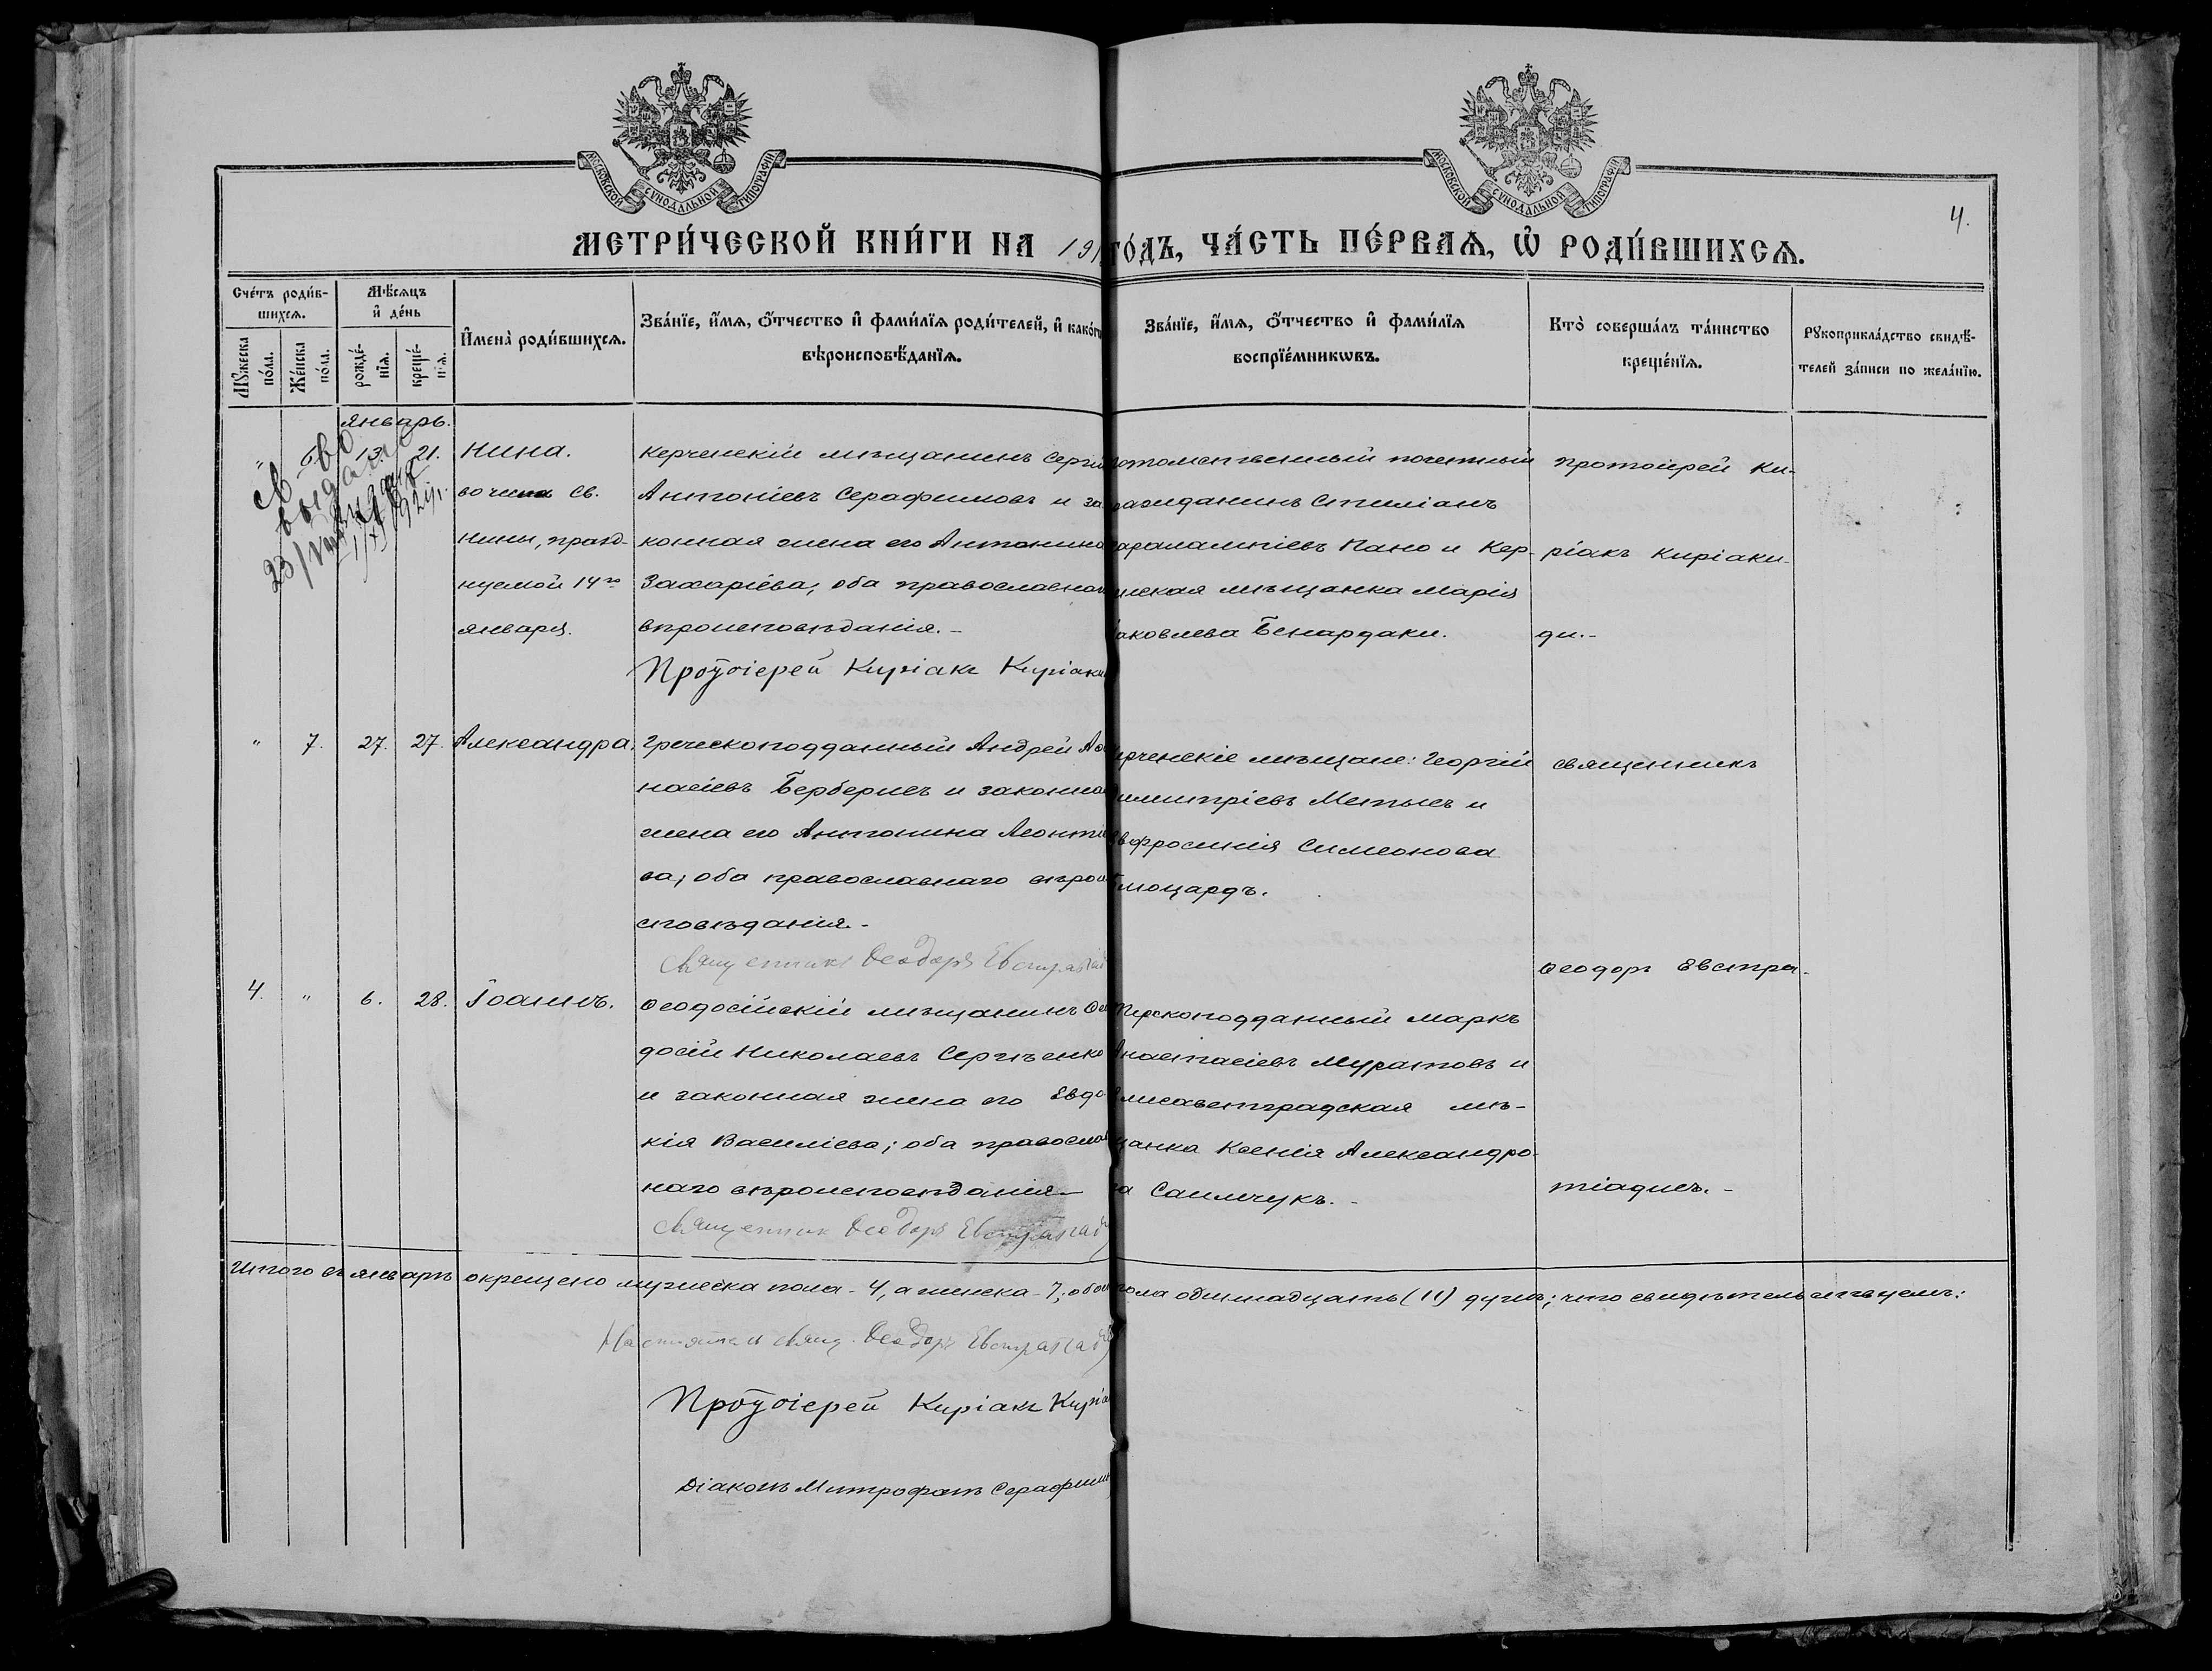 МОСКОВСКОЙ СѴНОДАЛЬНОЙ ТИПОГРАФІИ
МОСКОВСКОЙ СѴНОДАЛЬНОЙ ТИПОГРАФІИ
4.
МЕТРИ́ЧЕСКОЙ КНИ́ГИ НА 191
ГО́ДЪ, ЧА́СТЬ ПЕ́РВАѦ, Ѡ҆ РОДИ́ВШИХСѦ.
Сче́тъ роди́в-
шихсѧ.
Мѣ́сѧцъ
и҆ де́нь
Мꙋ́жеска
по́ла.
Же́нска
по́ла.
рожде́-
нїѧ.
креще́-
нїѧ.
И҆мена̀ роди́вшихсѧ.
Зва́нїе, и҆́мѧ, ѻ҆́тчество и҆ фами́лїѧ роди́телей, и҆ како́гѡ
вѣроисповѣ́данїѧ.
Зва́нїе, и҆́мѧ, ѻ҆́тчество и҆ фами́лїѧ
воспрїе́мникѡвъ.
Кто̀ соверша́лъ та́инство
креще́нїѧ.
Рꙋкоприкла́дство свидѣ́-
телей за́писи по жела́нїю.
январь.
" 6. 13. 21.
Св-во
выдано
Нина.
во имя св.
Нины, празд-
нуемой 14го
января.
Керченскій мѣщанинъ Сергій
Антоніевъ Серафимовъ и за-
конная жена его Антонина
Захаріева, оба православнаго
вѣроисповѣданія.-
Протоіерей Киріакъ Киріаки
потомственный почетный
гражданинъ Стиліанъ
Харалампіевъ Пано и Кер-
ченская мѣщанка Марія
Іаковлева Бенардаки.
протоіерей Ки-
ріакъ Киріаки-
ди.-
" 7. 27. 27. Александра.
Греческоподданный Андрей Аѳа
насіевъ Берберисъ и законная
жена его Антонина Леонтіе
ва; оба православнаго вѣрои
сповѣданія.-
Священникъ Ѳеодоръ Евстратіад
Керченскіе мѣщане: Георгій
Димитріевъ Метысъ и
Евфросинія Симеонова
священникъ
Ѳеодоръ Евстра-
тіадисъ.-
4. " 6. 28. Іоаннъ.
Ѳеодосійскій мѣщанинъ Ѳео
досій Николаевъ Сергѣенко
и законная жена его Евдо
кія Василіева; оба православ
наго вѣроисповѣданія.-
Священник Ѳеодоръ Евстратіад
Турскоподданный Маркъ
Анастасіевъ Муратовъ и
Елисаветградская мѣ-
щанка Ксенія Александро-
ва Саимчукъ.-
Итого въ январѣ окрещено мужеска пола - 4, а женска - 7, обоего пола одиннадцать (11) душъ; что свидѣтельствуемъ:
Настоятель Свящ. Ѳеодоръ Евстратіад
Протоіерей Киріакъ Киріа
Діаконъ Митрофанъ Серафим